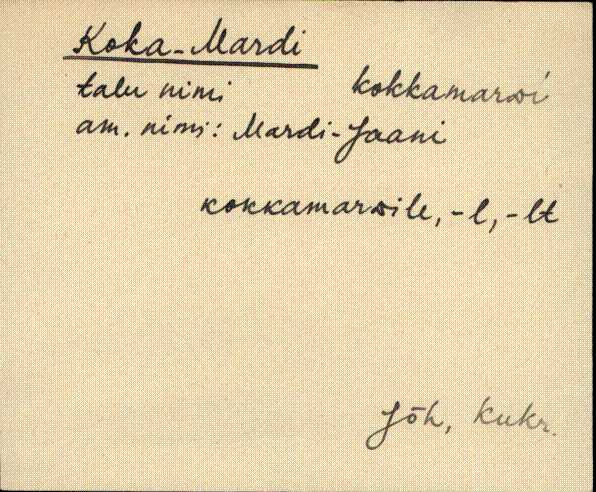 Koka-Mardi
talu nimi kokkamarᴅi
am. nimi: Mardi-Jaani
kokkamarᴅile, -l, -lt
Jõh, Kukr.